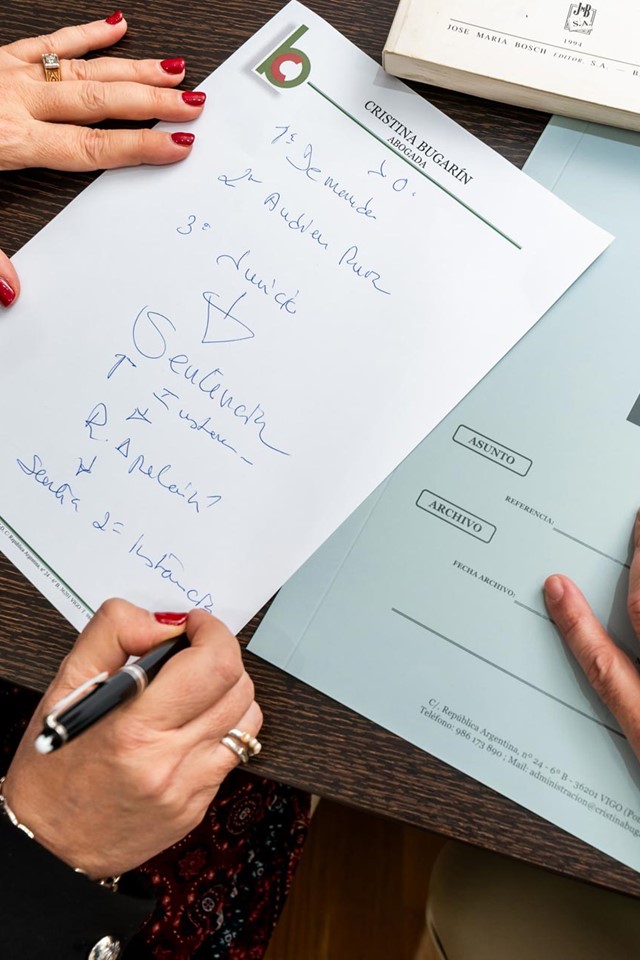 J.B
S.A.
1994
JOSE MARIA BOSCH EDITOR, S.A.
b
CRISTINA BUGARÍN
ABOGADA
1º Demanda
2º Audien
3º Juicio
Sentencia
1ª Instan
R. Apelación
2ª Instancia
ASUNTO
REFERENCIA:
ARCHIVO
FECHA ARCHIVO:
C/. República Argentina, nº 24 - 6º B - 36201 VIGO
C/. República Argentina, nº 24 - 6º B - 36201 VIGO (Pon
Teléfono: 986 173 890 ; Mail: administracion@cristinabuga